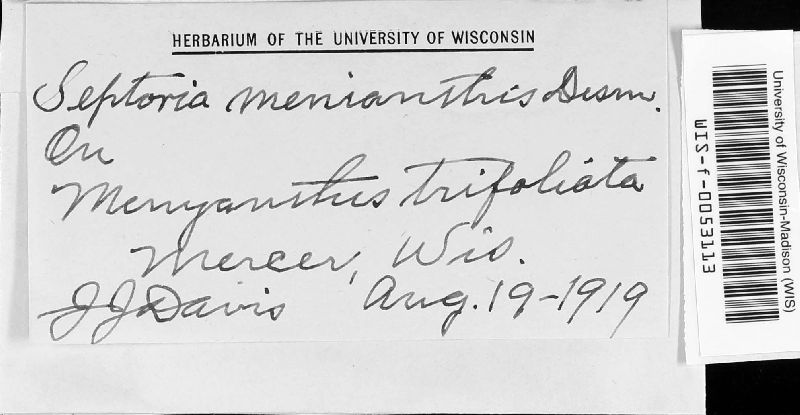 HERBARIUM OF THE UNIVERSITY OF WISCONSIN
Septoria menianthis Desm.
On
Menyanthes trifoliata
Mercer, Wis.
JJDavis Aug. 19-1919
University of Wisconsin-Madison (WIS)
WIS-f-0053113